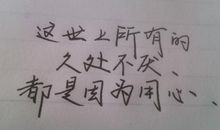 这世上所有的
久处不厌、
都是因为用心、